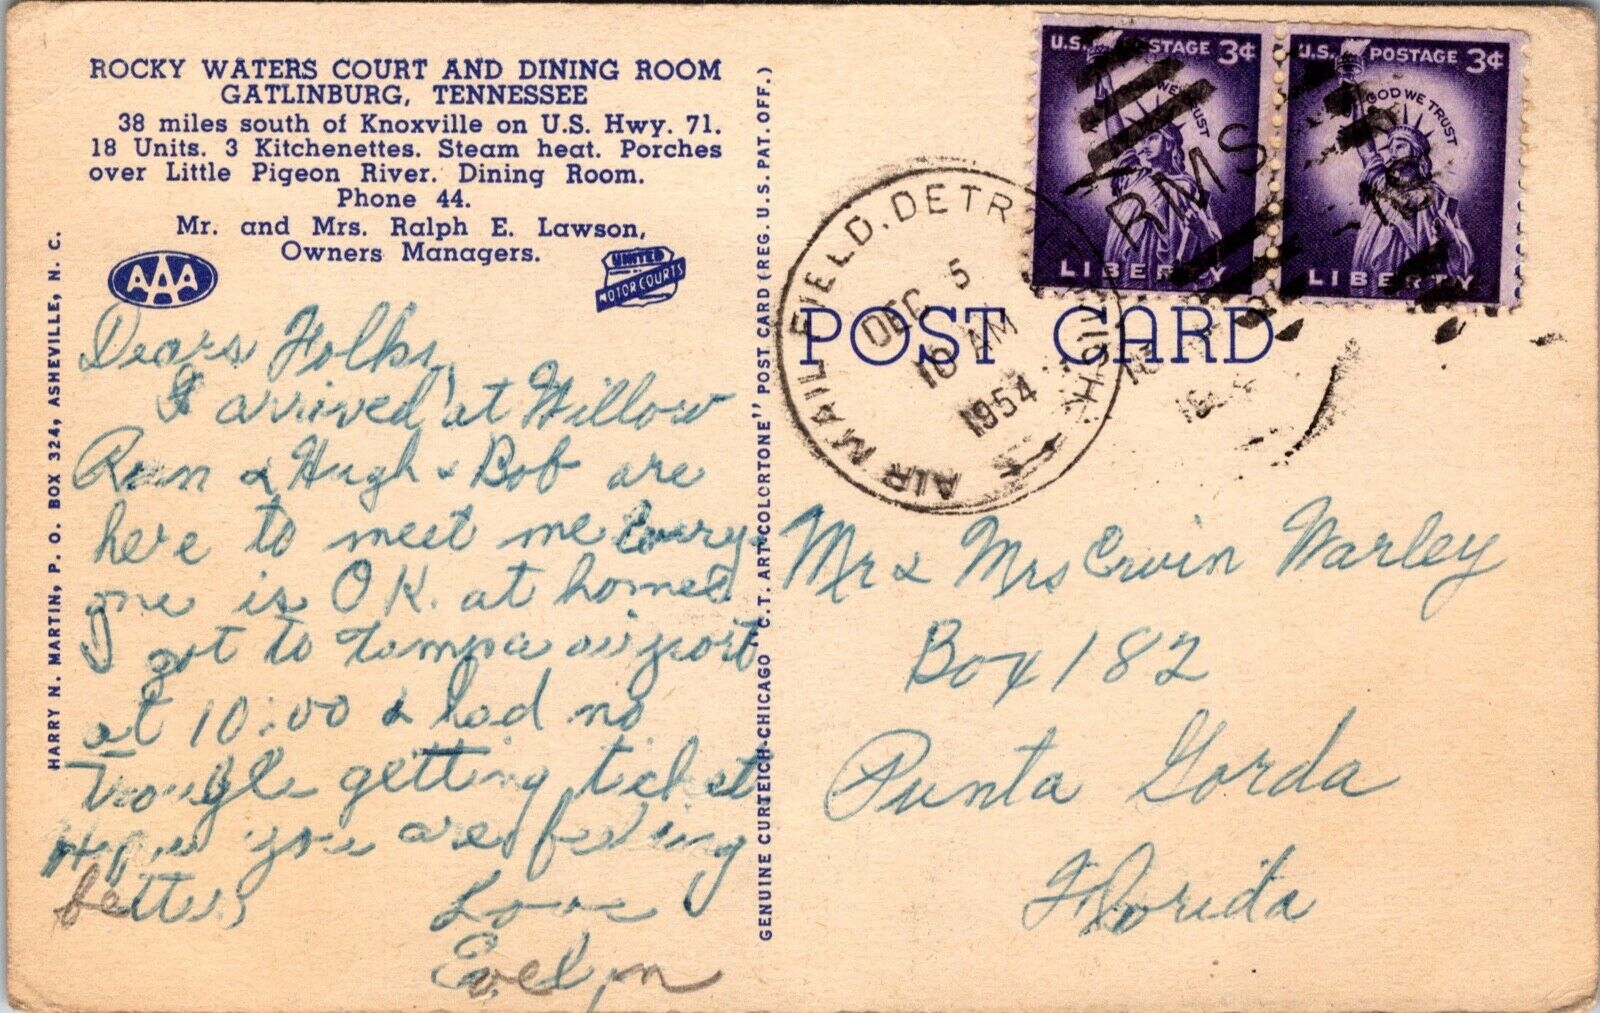 ROCKY WATERS COURT AND DINING ROOM
GATLINBURG, TENNESSEE
38 miles south of Knoxville on U.S. Hwy. 71.
18 Units. 3 Kitchenettes. Steam heat. Porches
over Little Pigeon River. Dining Room.
Phone 44.
Mr. and Mrs. Ralph E. Lawson,
Owners Managers.
AAA
UNITED
MOTOR COURTS
HARRY N. MARTIN, P. O. BOX 324, ASHEVILLE, N. C.
Dears Folks,
I arrived at Willow
Run & Hugh & Bob are
here to meet me Every
one is O K. at home.
I got to tampa airport
at 10:00 & had no
trouble getting ticket
Hope you are feeling
better
Love
Evelyn
GENUINE CURTEICH-CHICAGO "C.T. ART-COLORTONE" POST CARD (REG. U.S. PAT. OFF.)
POST CARD
U.S. POSTAGE 3¢
WE TRUST
LIBERTY
U.S. POSTAGE 3¢
GOD WE TRUST
LIBERTY
AIR MAIL FIELD, DETROIT MICH.
DEC 5
10 AM
1954
RMS
Mr & Mrs Ervin Warley
Box 182
Punta Gorda
Florida